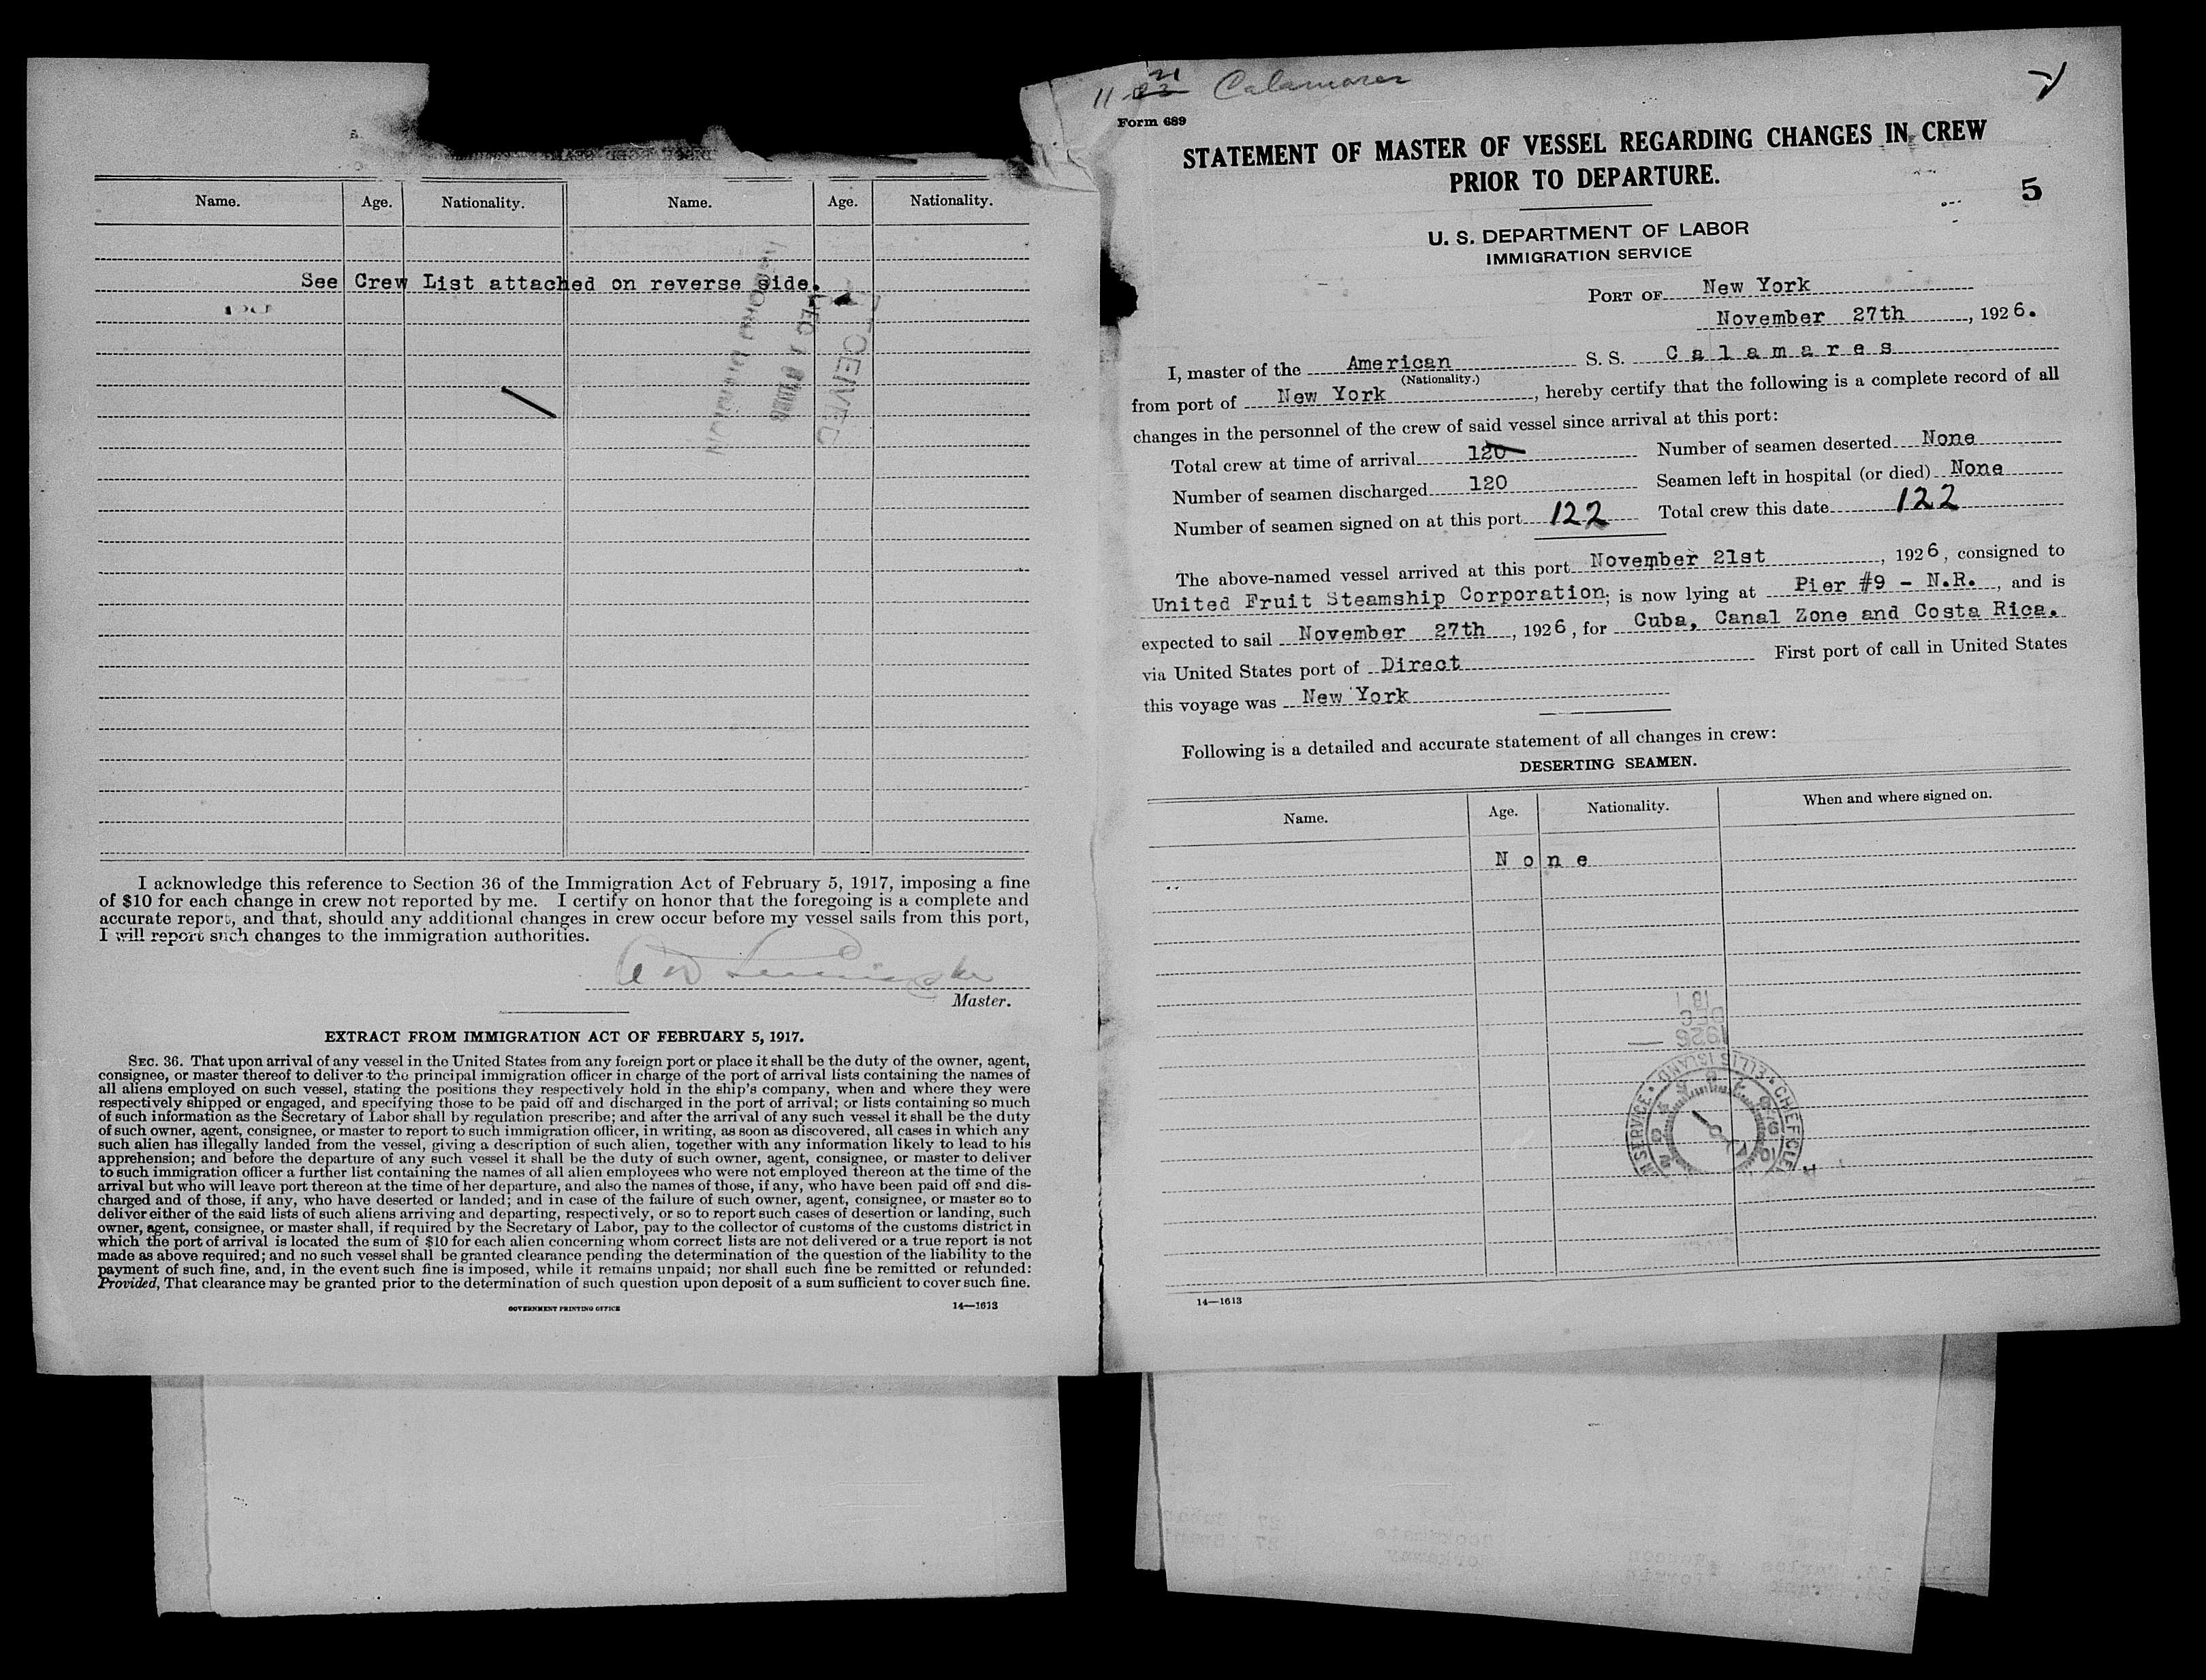 Name. Age. Nationality. Name. Age. Nationality.
See Crew List attached on reverse side.
I acknowledge this reference to Section 36 of the Immigration Act of February 5, 1917, imposing a fine
of $10 for each change in crew not reported by me. I certify on honor that the foregoing is a complete and
accurate report, and that, should any additional changes in crew occur before my vessel sails from this port,
I will report such changes to the immigration authorities.
Master.
EXTRACT FROM IMMIGRATION ACT OF FEBRUARY 5, 1917.
SEC. 36. That upon arrival of any vessel in the United States from any foreign port or place it shall be the duty of the owner, agent,
consignee, or master thereof to deliver to the principal immigration officer in charge of the port of arrival lists containing the names of
all aliens employed on such vessel, stating the positions they respectively hold in the ship's company, when and where they were
respectively shipped or engaged, and specifying those to be paid off and discharged in the port of arrival; or lists containing so much
of such information as the Secretary of Labor shall by regulation prescribe; and after the arrival of any such vessel it shall be the duty
of such owner, agent, consignee, or master to report to such immigration officer, in writing, as soon as discovered, all cases in which any
such alien has illegally landed from the vessel, giving a description of such alien, together with any information likely to lead to his
apprehension; and before the departure of any such vessel it shall be the duty of such owner, agent, consignee, or master to deliver
to such immigration officer a further list containing the names of all alien employees who were not employed thereon at the time of the
arrival but who will leave port thereon at the time of her departure, and also the names of those, if any, who have been paid off and dis-
charged and of those, if any, who have deserted or landed; and in case of the failure of such owner, agent, consignee, or master so to
deliver either of the said lists of such aliens arriving and departing, respectively, or so to report such cases of desertion or landing, such
owner, agent, consignee, or master shall, if required by the Secretary of Labor, pay to the collector of customs of the customs district in
which the port of arrival is located the sum of $10 for each alien concerning whom correct lists are not delivered or a true report is not
made as above required; and no such vessel shall be granted clearance pending the determination of the question of the liability to the
payment of such fine, and, in the event such fine is imposed, while it remains unpaid; nor shall such fine be remitted or refunded:
Provided, That clearance may be granted prior to the determination of such question upon deposit of a sum sufficient to cover such fine.
GOVERNMENT PRINTING OFFICE 14—1613
11-21 Calamares
Form 689
STATEMENT OF MASTER OF VESSEL REGARDING CHANGES IN CREW
PRIOR TO DEPARTURE.
5
U. S. DEPARTMENT OF LABOR
IMMIGRATION SERVICE
PORT OF New York
November 27th, 1926.
I, master of the American S. S. Calamares
(Nationality.)
from port of New York, hereby certify that the following is a complete record of all
changes in the personnel of the crew of said vessel since arrival at this port:
Total crew at time of arrival 120 Number of seamen deserted None
Number of seamen discharged 120 Seamen left in hospital (or died) None
Number of seamen signed on at this port 122 Total crew this date 122
The above-named vessel arrived at this port November 21st, 1926, consigned to
United Fruit Steamship Corporation; is now lying at Pier #9 - N.R., and is
expected to sail November 27th, 1926, for Cuba, Canal Zone and Costa Rica.
via United States port of Direct First port of call in United States
this voyage was New York
Following is a detailed and accurate statement of all changes in crew:
DESERTING SEAMEN.
Name. Age. Nationality. When and where signed on.
None
14—1613